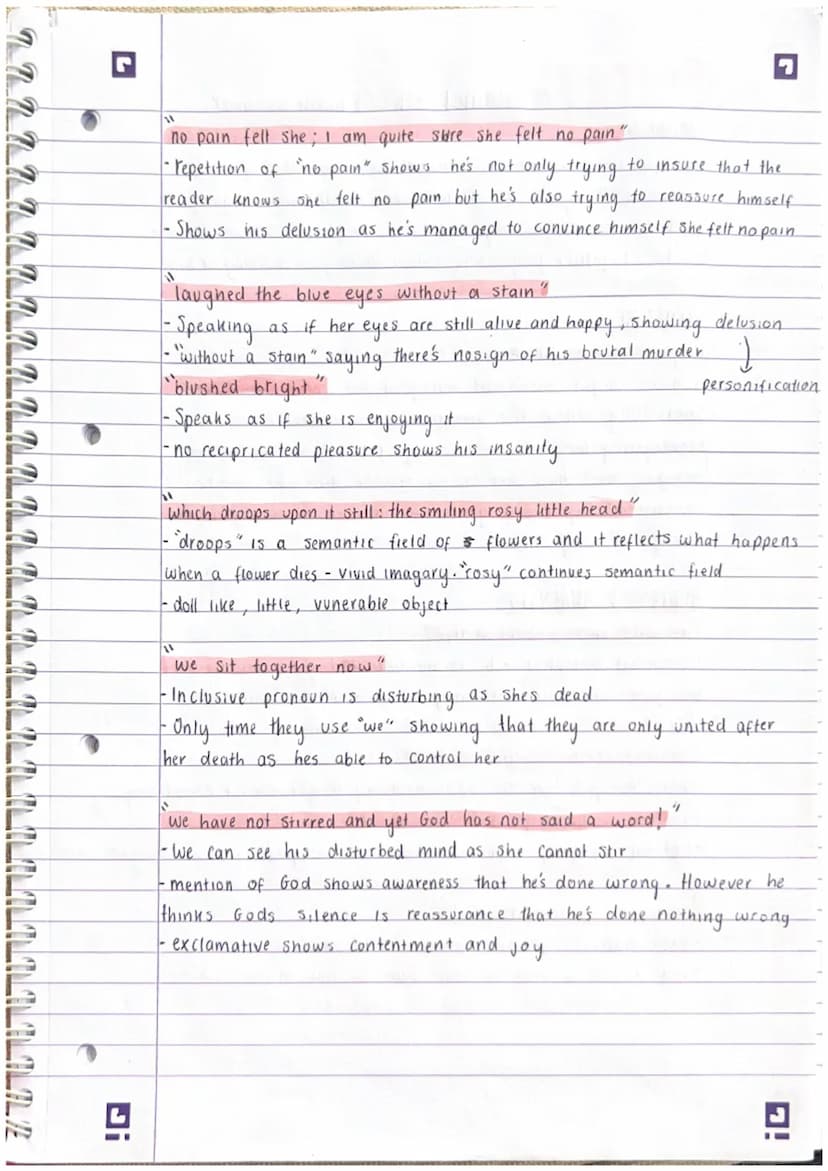 "no pain felt she; I am quite sure she felt no pain"
- repetition of "no pain" shows he's not only trying to insure that the
reader knows she felt no pain but he's also trying to reassure himself
- Shows his delusion as he's managed to convince himself she felt no pain
"laughed the blue eyes without a stain"
- Speaking as if her eyes are still alive and happy, showing delusion
- "without a stain" saying there's nosign of his brutal murder
personification
"blushed bright"
- Speaks as if she is enjoying it
- no recipricated pleasure shows his insanity
"which droops upon it still: the smiling rosy little head"
- "droops" is a semantic field of flowers and it reflects what happens
when a flower dies - vivid imagary. "rosy" continues semantic field
- doll like, little, vunerable object
"we sit together now"
- Inclusive pronoun is disturbing as shes dead
- Only time they use "we" showing that they are only united after
her death as hes able to control her
"we have not stirred and yet God has not said a word!"
- We can see his disturbed mind as she cannot stir
- mention of God shows awareness that he's done wrong. However he
thinks Gods silence is reassurance that he's done nothing wrong
- exclamative shows contentment and joy